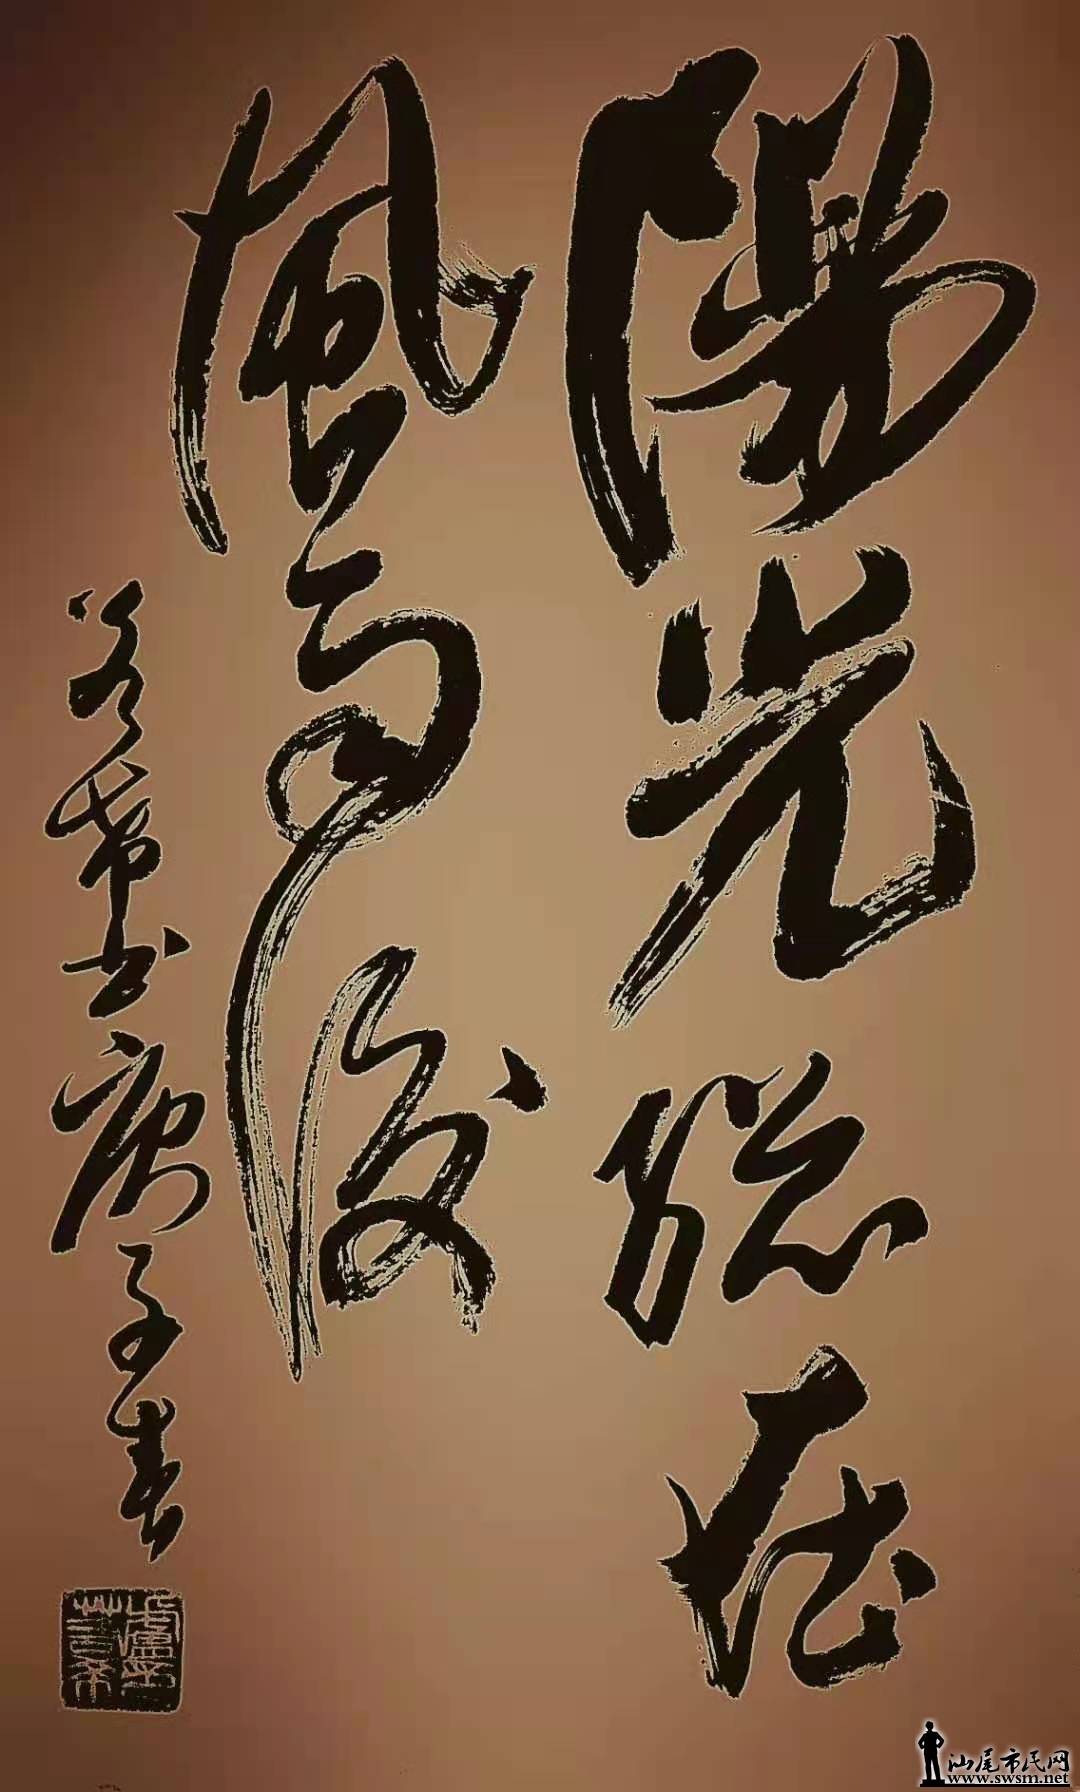 陽光總在
風雨後
希書庚子春
汕尾市民网
www.swsm.net